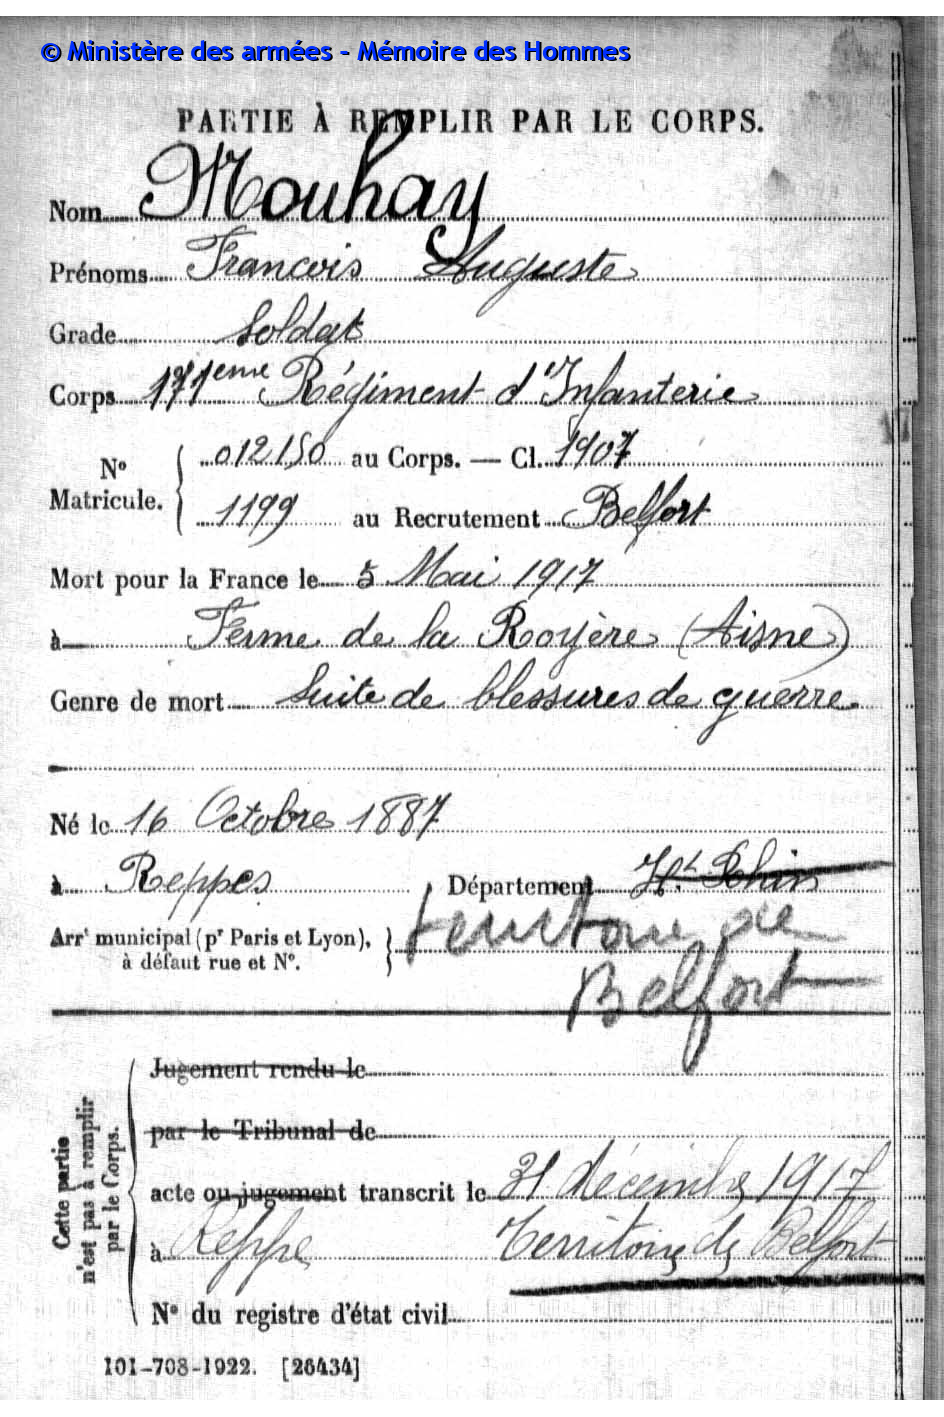 © Ministère des armées - Mémoire des Hommes
PARTIE À REMPLIR PAR LE CORPS.
Nom Mouhay
Prénoms François Auguste
Grade Soldat
Corps 171eme Régiment d'Infanterie
N° Matricule. 012150 au Corps. — Cl. 1907
1199 au Recrutement Belfort
Mort pour la France le 5 Mai 1917
à Ferme de la Royère (Aisne)
Genre de mort Suite de blessures de guerre
Né le 16 Octobre 1887
à Reppes Département Ht Rhin
territoire de
Arrt municipal (pr Paris et Lyon),
à défaut rue et N°.
Belfort
Cette partie n'est pas à remplir par le Corps.
Jugement rendu le
par le Tribunal de
acte ou jugement transcrit le 31 décembre 1917
à Reppe Territoire de Belfort
N° du registre d'état civil
101-708-1922. [26434]